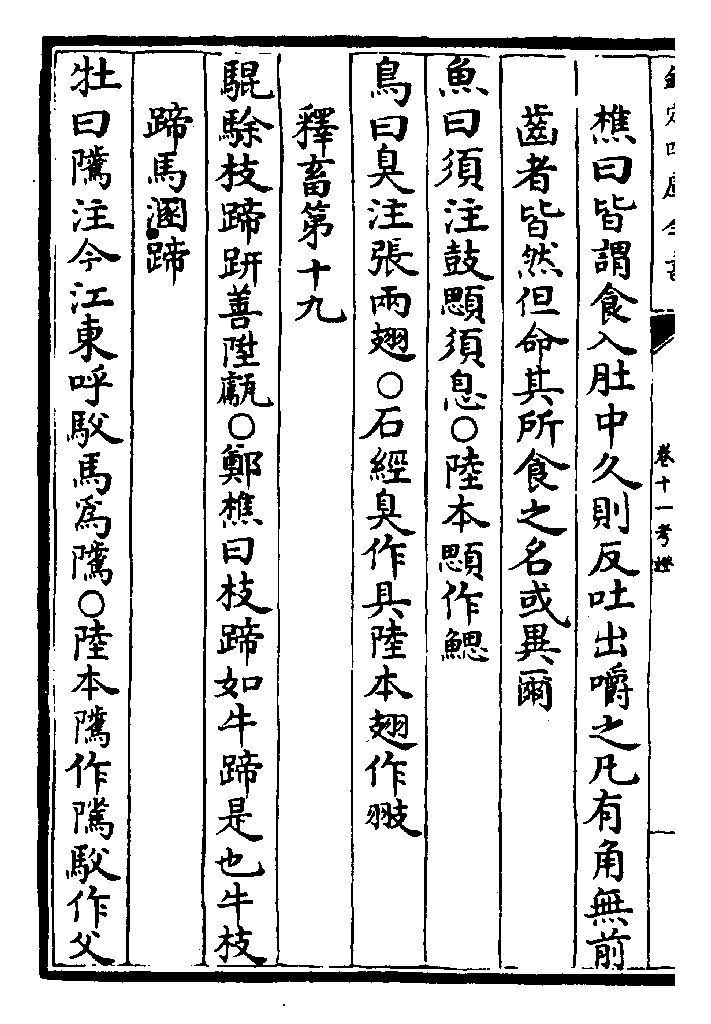 欽定四庫全書
卷十一考證
樵曰皆謂食入肚中久則反吐出嚼之凡有角無前
齒者皆然但命其所食之名或異爾
魚曰須注鼓顋須息○陸本顋作鰓
鳥曰臭注張兩翅○石經臭作具陸本翅作翄
釋畜第十九
騉駼枝蹄趼善陞甗○鄭樵曰枝蹄如牛蹄是也牛枝
蹄馬溷蹄
牡曰騭注今江東呼駁馬為騭○陸本騭作騭駁作父